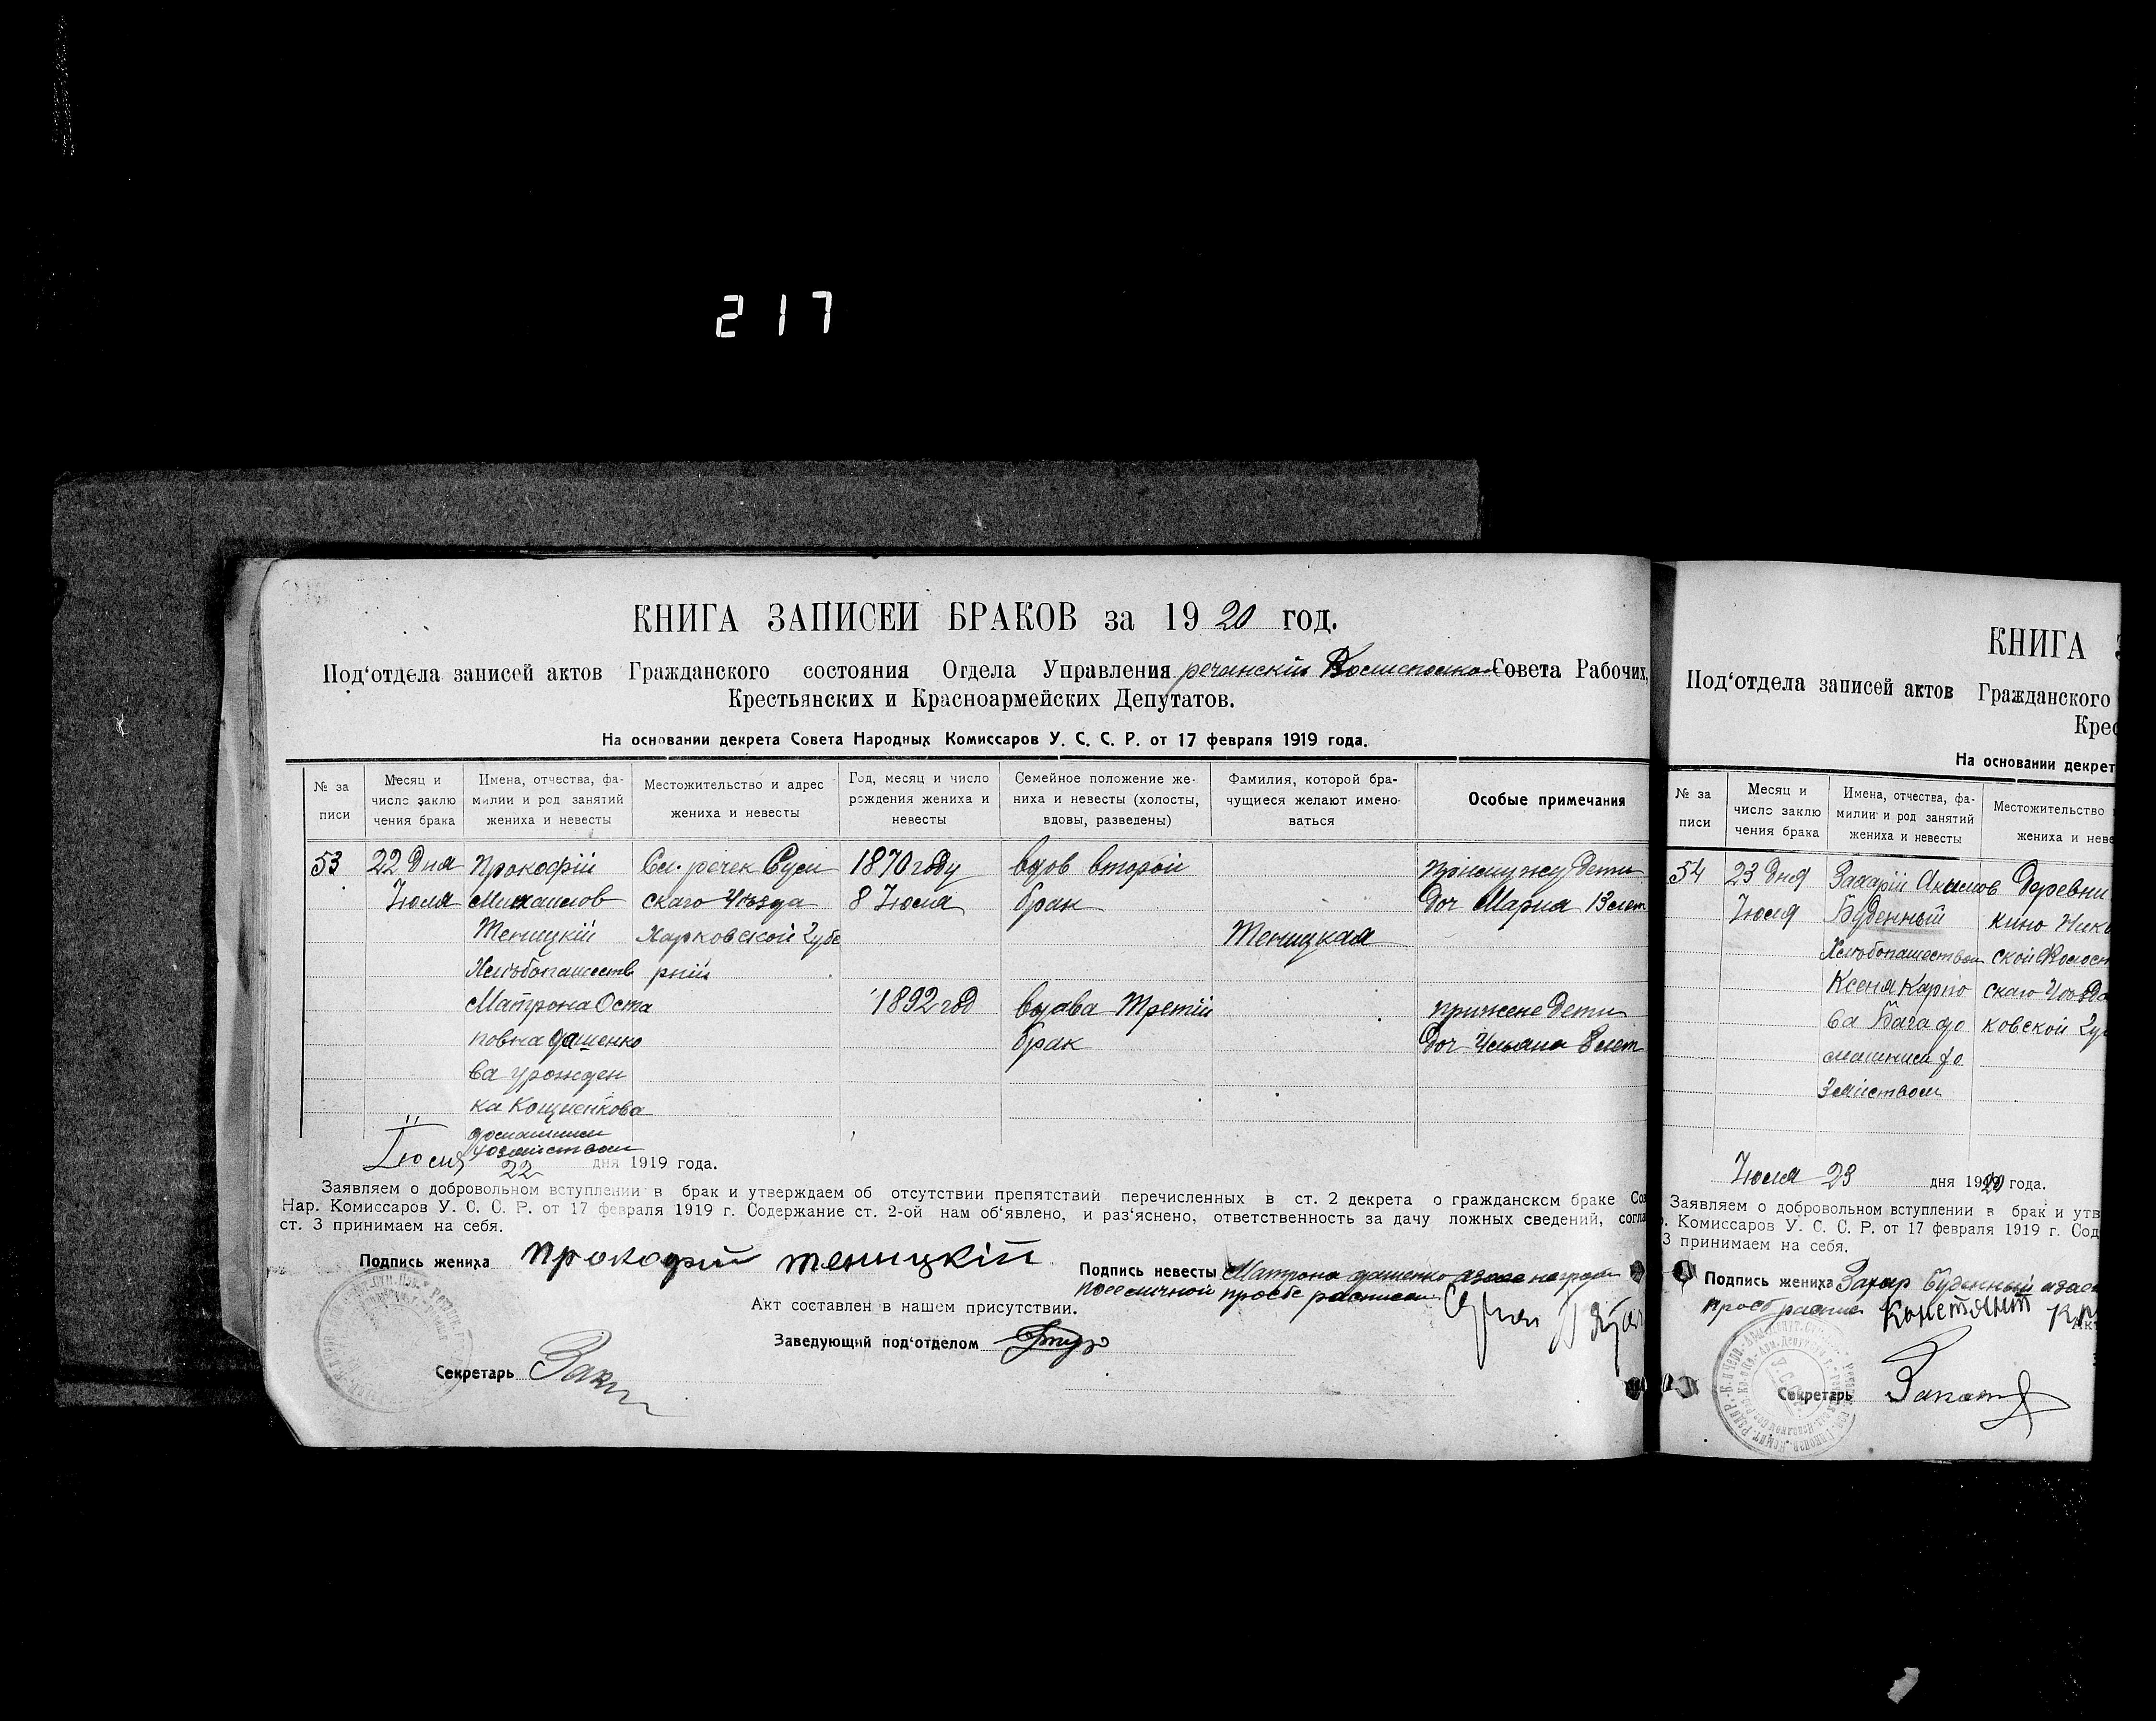 217
КНИГА ЗАПИСЕЙ БРАКОВ за 1920 год.
Под‘отдела записей актов Гражданского состояния Отдела Управления речанскій Совета Рабочих,
Крестьянских и Красноармейских Депутатов.
На основании декрета Совета Народных Комиссаров У. С. С. Р. от 17 февраля 1919 года.
№ за писи
Месяц и число заклю чения брака
Имена, отчества, фамилии и род занятий жениха и невесты
Местожительство и адрес жениха и невесты
Год, месяц и число рождения жениха и невесты
Семейное положение жениха и невесты (холосты, вдовы, разведены)
Фамилия, которой брачущиеся желают именоваться
Особые примечания
53 22 Дня Прокофій Сл. речек Суми 1870 году вдов второй примужу дети
Июля Михаилов скаго Уѣзда 8 Июля брак доч Мария 13 лет
Теницкій Харковской Губе Теницкая
Хлѣбопашеств рній
Матрона Оста 1892 год вдова Третій прижене дети
повна дашенко брак доч Ульяна 8 лет
ва урожден
ка Кощиенкова
домашним
хозяйством
Июля 22 дня 1919 года.
Заявляем о добровольном вступлении в брак и утверждаем об отсутствии препятствий перечисленных в ст. 2 декрета о гражданском браке Сов
Нар. Комиссаров У. С. С. Р. от 17 февраля 1919 г. Содержание ст. 2-ой нам об‘явлено, и раз‘яснено, ответственность за дачу ложных сведений, согла
ст. 3 принимаем на себя.
Подпись жениха Прокофий теницкій
Подпись невесты Матрона дашенко
поееличной просбе расписался
Акт составлен в нашем присутствии.
Заведующий под‘отделом
Секретарь
КНИГА З
Под‘отдела записей актов Гражданского
Крес
На основании декрет
№ за писи
Месяц и число заклю чения брака
Имена, отчества, фамилии и род занятий жениха и невесты
Местожительство жениха и неве
54 23 Дня Захарій Акимов Деревни
Июля Буденный кино Ника
Хлѣбопашеством ской Волост
Ксения Карпо скаго Уѣзда
ва ковской Гу
машним хо
зяйством
Июля 23 дня 1920 года.
Заявляем о добровольном вступлении в брак и утв
р. Комиссаров У. С. С. Р. от 17 февраля 1919 г. Сод
3 принимаем на себя.
Подпись жениха Захар Буденный азас
Констянт
Акт
Секретарь